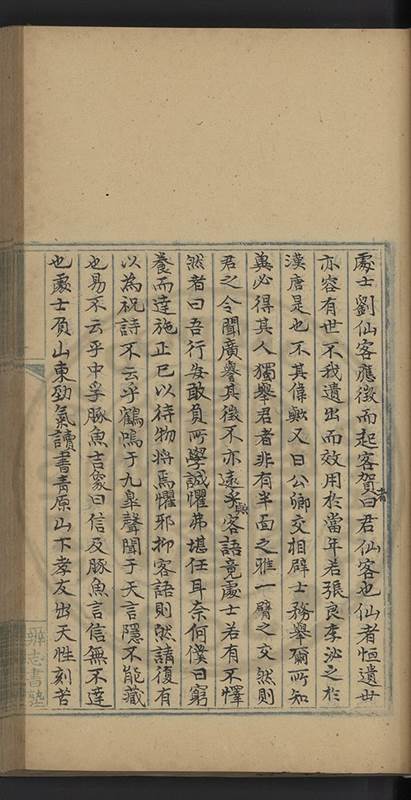 處士劉仙客應徴而起客賀者曰君仙客也仙者恒遺世
亦容有世不我遺出而效用於當年若張良李泌之於
漢唐是也不其偉歟又曰公卿交相辟士務舉爾所知
與必得其人獨舉君者非有半面之雅一臂之交然則
君之令聞廣譽其徴不亦遠乎歟客語竟處士若有不懌
然者曰吾行安敢負所學誠懼弗堪任耳奈何僕曰窮
養而達施正已以待物將焉懼邪抑客語則然請復有
以為祝詩不云乎鶴鳴于九臯聲聞于天言隱不能藏
也易不云乎中孚豚魚吉彖曰信及豚魚言信無不達
也處士負山東勁氣讀書青原山下孝友出天性刻苦
辨志書塾